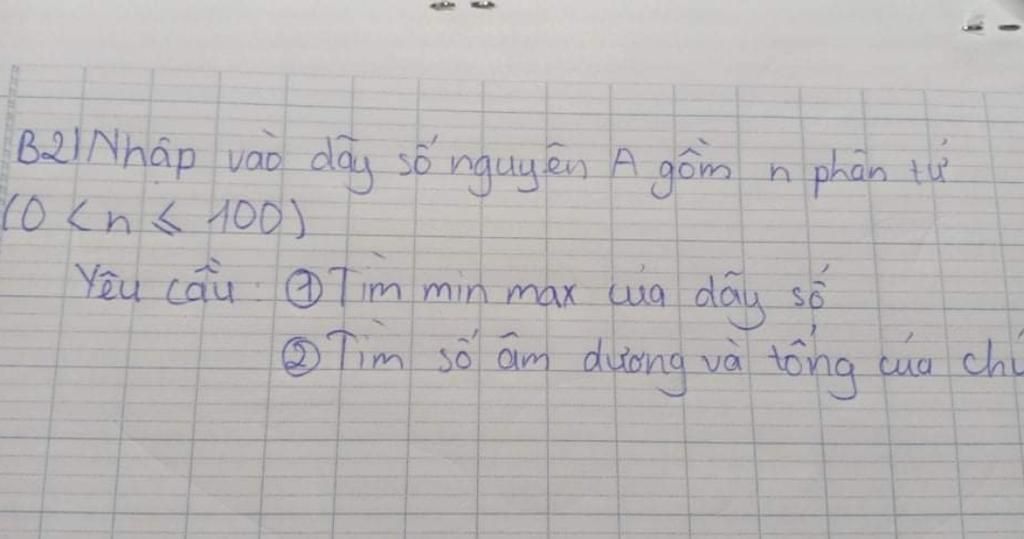 B2) Nhập vào dãy số nguyên A gồm n phần tử
(0 < n ≤ 100)
Yêu cầu: ① Tìm min max của dãy số
② Tìm số âm dương và tổng của